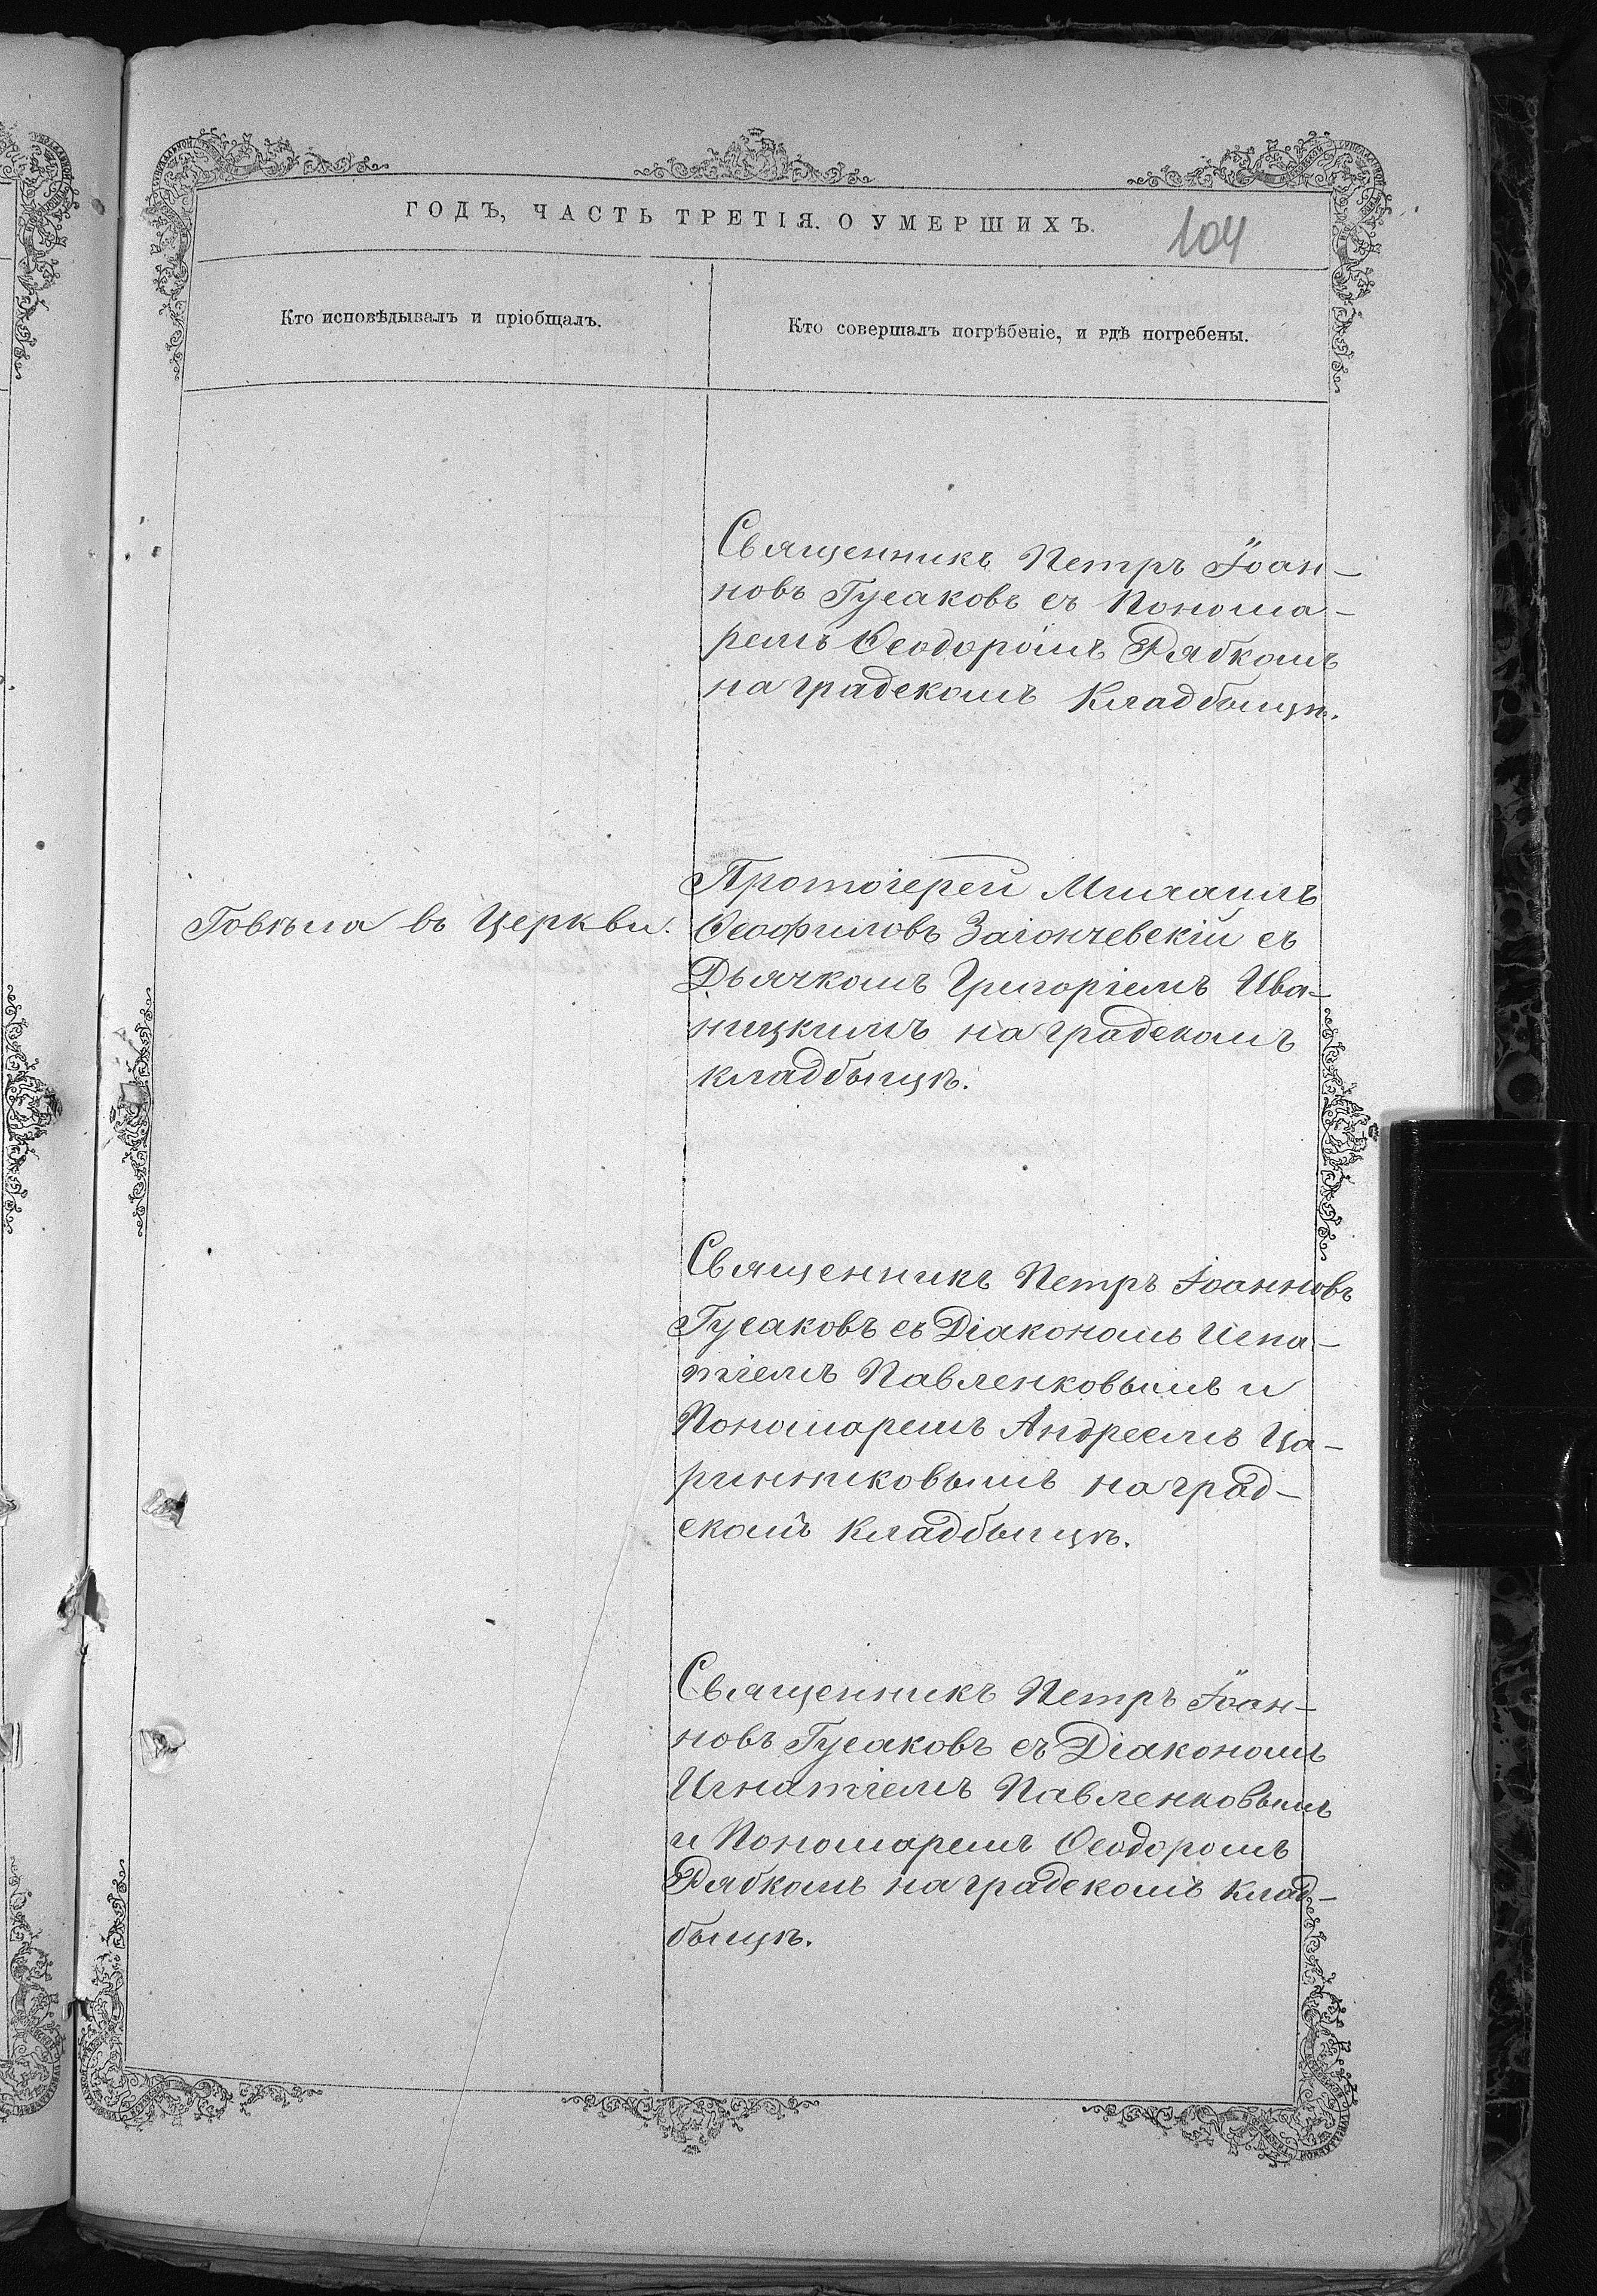 ГОДЪ, ЧАСТЬ ТРЕТІЯ. О УМЕРШИХЪ.
104
Кто исповѣдывалъ и пріобщалъ.
Кто совершалъ погрѣбеніе, и гдѣ погребены.
Священникъ Петръ Іоан-
новъ Гусаковъ съ Понома-
ремъ Ѳеодоромъ Рябкомъ
на градскомъ Кладбыщѣ.
Говѣла въ Церкви.
Протоіерей Михаилъ
Ѳеофиловъ Загончевскій съ
Дьячкомъ Григоріемъ Ива-
ницкимъ на градскомъ
кладбыщѣ.
Священникъ Петръ Іоанновъ
Гусаковъ съ Діакономъ Игна-
тіемъ Павленковымъ и
Пономаремъ Андреемъ Ца-
ринниковымъ на град-
скомъ кладбыщѣ.
Священникъ Петръ Іоан-
новъ Гусаковъ съ Діакономъ
Игнатіемъ Павленковымъ
и Пономаремъ Ѳеодоромъ
Рябкомъ на градскомъ клад-
быщѣ.